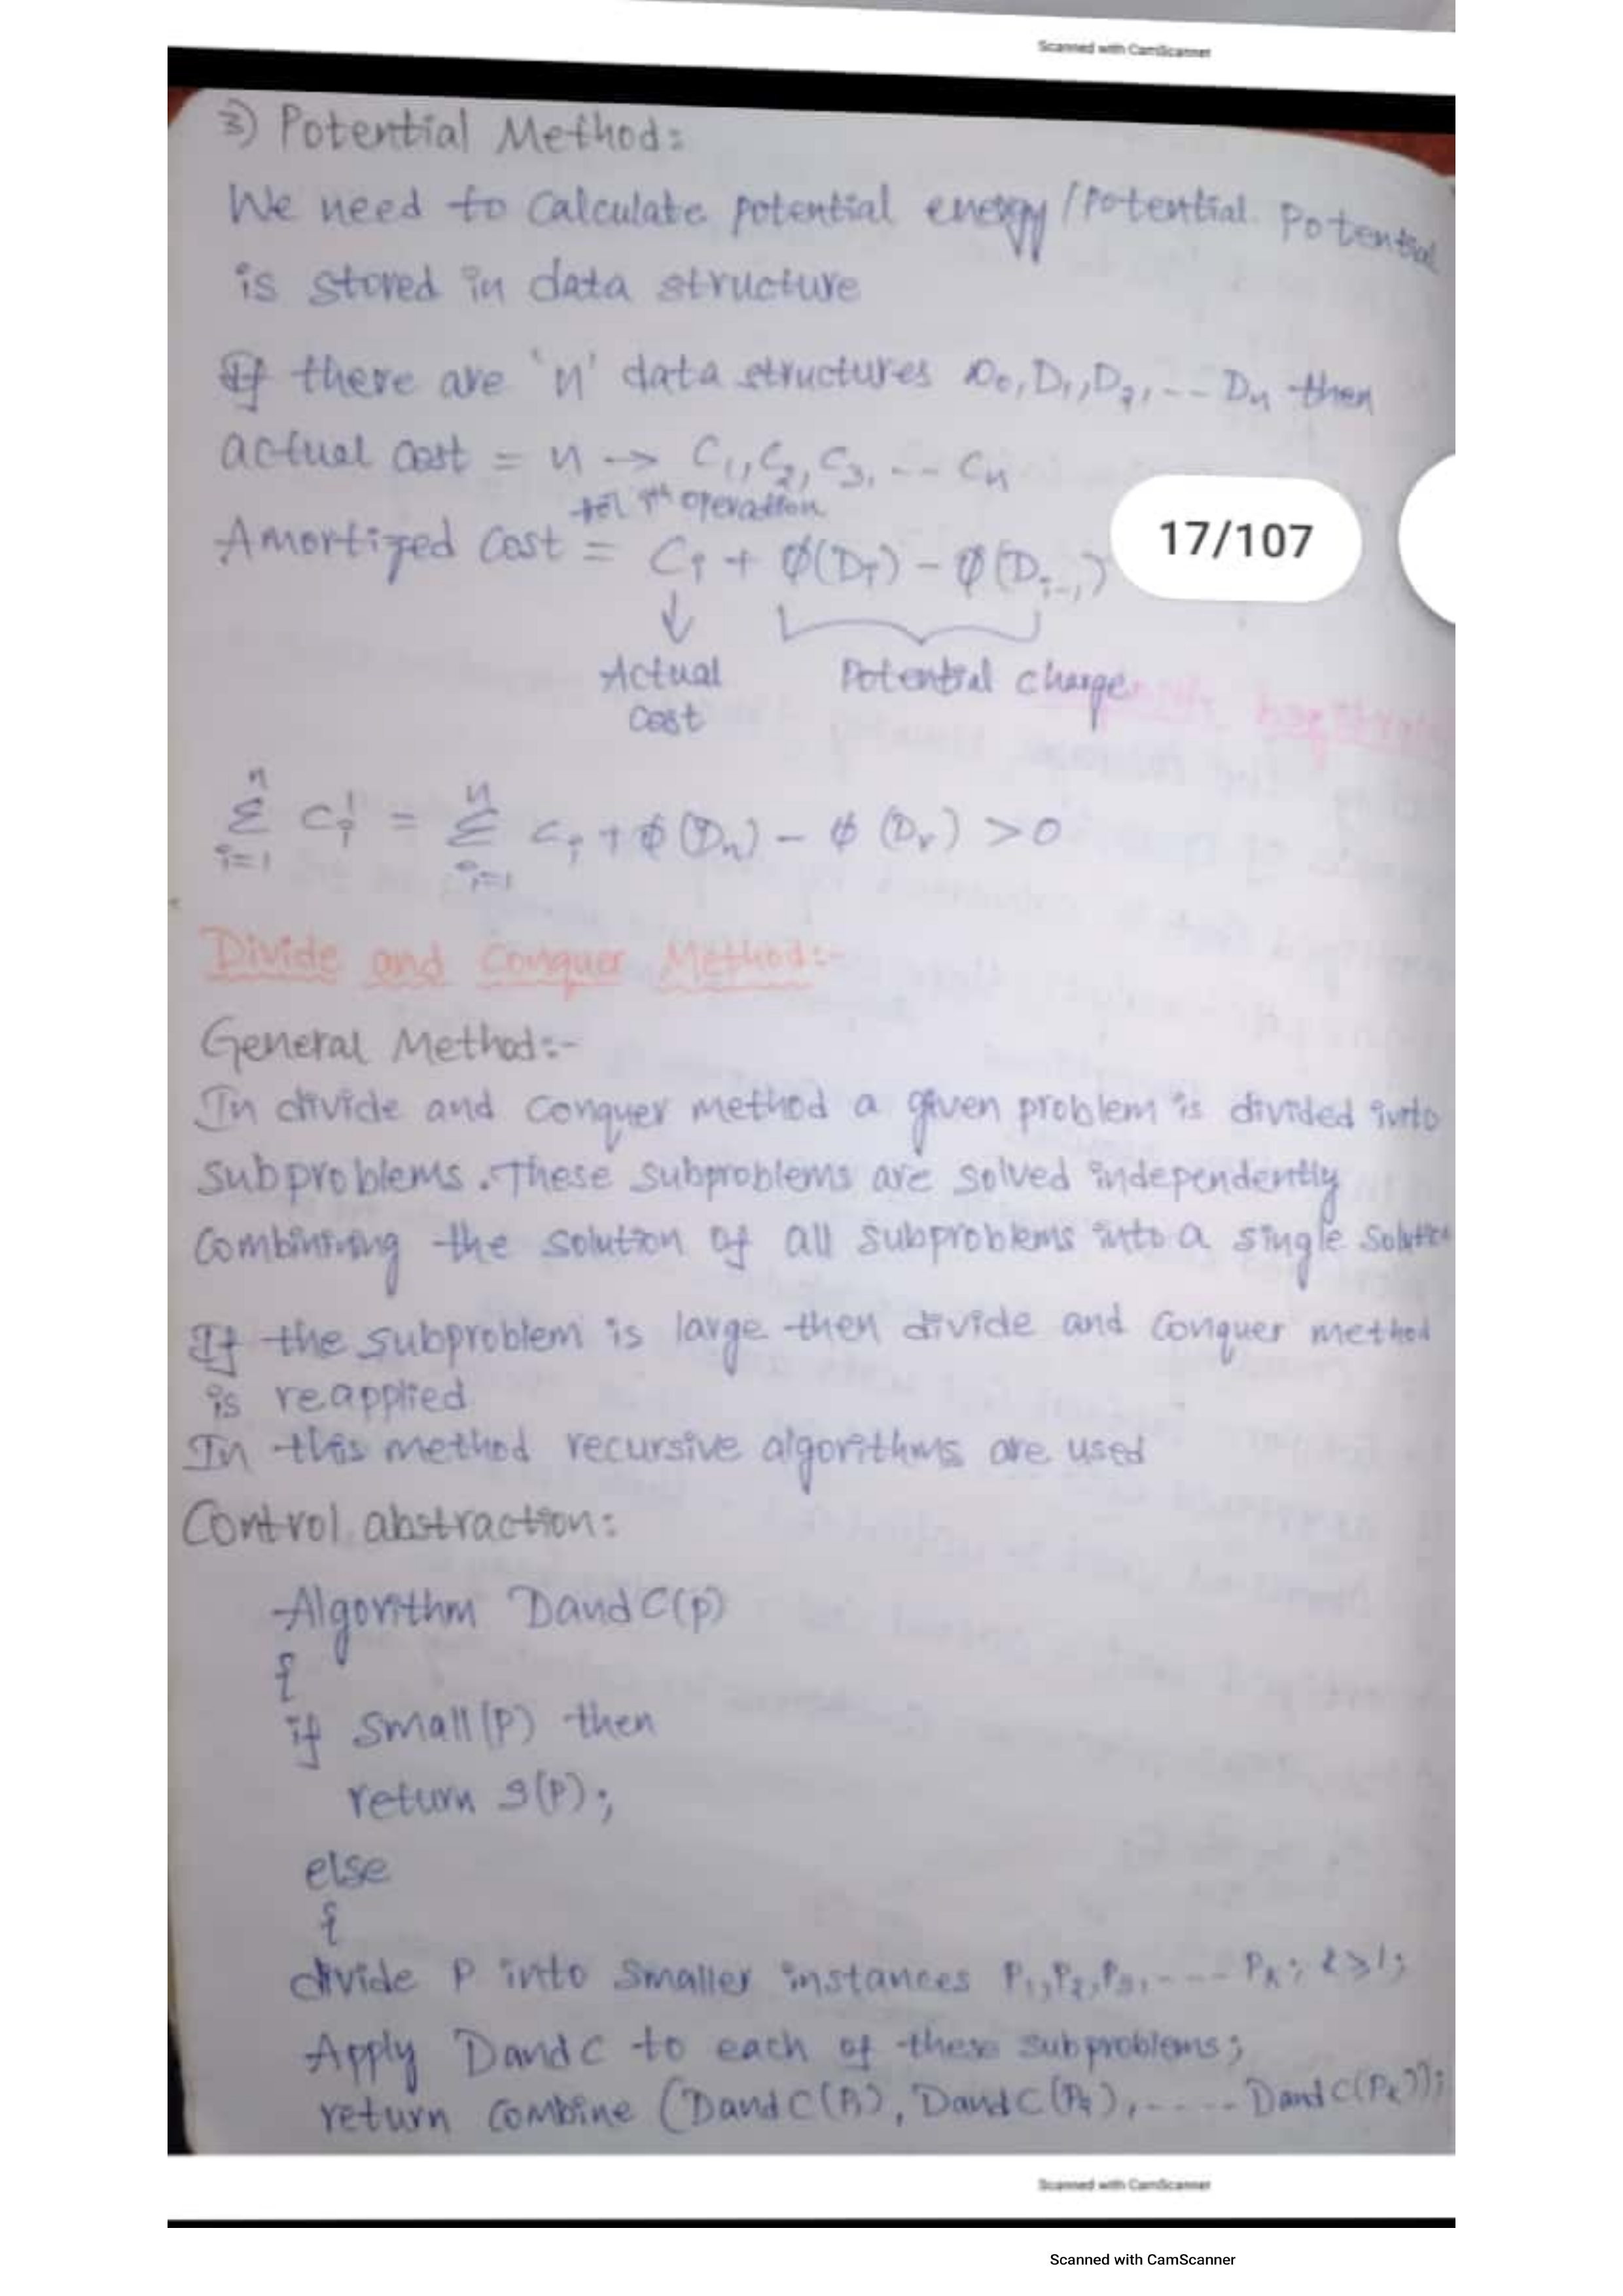 Scanned with CamScanner
3) Potential Method:
We need to calculate potential energy/potential. Potential
is stored in data structure
If there are 'n' data structures D₀, D₁, D₂, --- Dₙ then
actual cost = n → C₁, C₂, C₃, --- Cₙ
iᵗʰ operation
Amortized cost = Cᵢ + ϕ(Dᵢ) - ϕ(Dᵢ₋₁)
17/107
↓
Actual Potential charge
cost
n n
Σ cᵢ' = Σ cᵢ + ϕ(Dₙ) - ϕ(Dᵣ) > 0
i=1 i=1
Divide and Conquer Method:-
General Method:-
In divide and conquer method a given problem is divided into
subproblems. These subproblems are solved independently
the solution of all subproblems into a single
If the subproblem is large then divide and conquer method
is reapplied
In this method recursive algorithms are used
Control abstraction:
Algorithm DandC(p)
{
if small(P) then
return S(P);
else
{
divide P into smaller instances P₁, P₂, P₃, ---- Pₖ; k≥1;
Apply DandC to each of these subproblems;
return combine (DandC(P₁), DandC(P₂), ----- DandC(Pₖ));
Scanned with CamScanner
Scanned with CamScanner